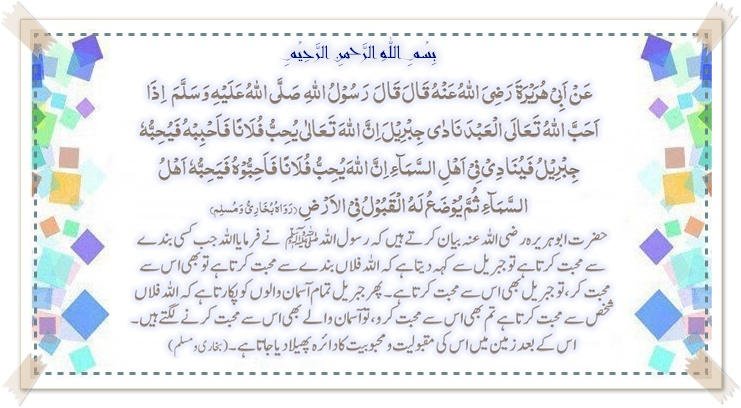 بِسْمِ اللهِ الرَّحْمنِ الرَّحِيْمِ
عَنْ اَبِیْ هُرَیْرَةَ رَضِیَ اللهُ عَنْهُ قَالَ قَالَ رَسُوْلُ اللهِ صَلَّی اللهُ عَلَیْهِ وَسَلَّمَ اِذَا
اَحَبَّ اللهُ تَعَالَی الْعَبْدَ نَادٰی جِبْرِیْلَ اِنَّ اللهَ تَعَالٰی یُحِبُّ فُلَانًا فَاَحْبِبْهُ فَیُحِبُّهٗ
جِبْرِیْلُ فَیُنَادِیْ فِیْ اَهْلِ السَّمَآءِ اِنَّ اللهَ یُحِبُّ فُلَانًا فَاَحِبُّوْهُ فَیُحِبُّهٗ اَهْلُ
السَّمَآءِ ثُمَّ یُوْضَعُ لَهُ الْقَبُوْلُ فِی الْاَرْضِ (رَوَاهُ بُخَارِیْ وَمُسْلِم)
حضرت ابو ہریرہ رضی اللہ عنہ بیان کرتے ہیں کہ رسول اللہ ﷺ نے فرمایا اللہ جب کسی بندے
سے محبت کرتا ہے تو جبریل سے کہہ دیتا ہے کہ اللہ فلاں بندے سے محبت کرتا ہے تو بھی اس سے
محبت کر، تو جبریل بھی اس سے محبت کرتا ہے۔ پھر جبریل تمام آسمان والوں کو پکارتا ہے کہ اللہ فلاں
شخص سے محبت کرتا ہے تم بھی اس سے محبت کرو، تو آسمان والے بھی اس سے محبت کرنے لگتے ہیں۔
اس کے بعد زمین میں اس کی مقبولیت و محبوبیت کا دائرہ پھیلا دیا جاتا ہے۔ (بخاری و مسلم)